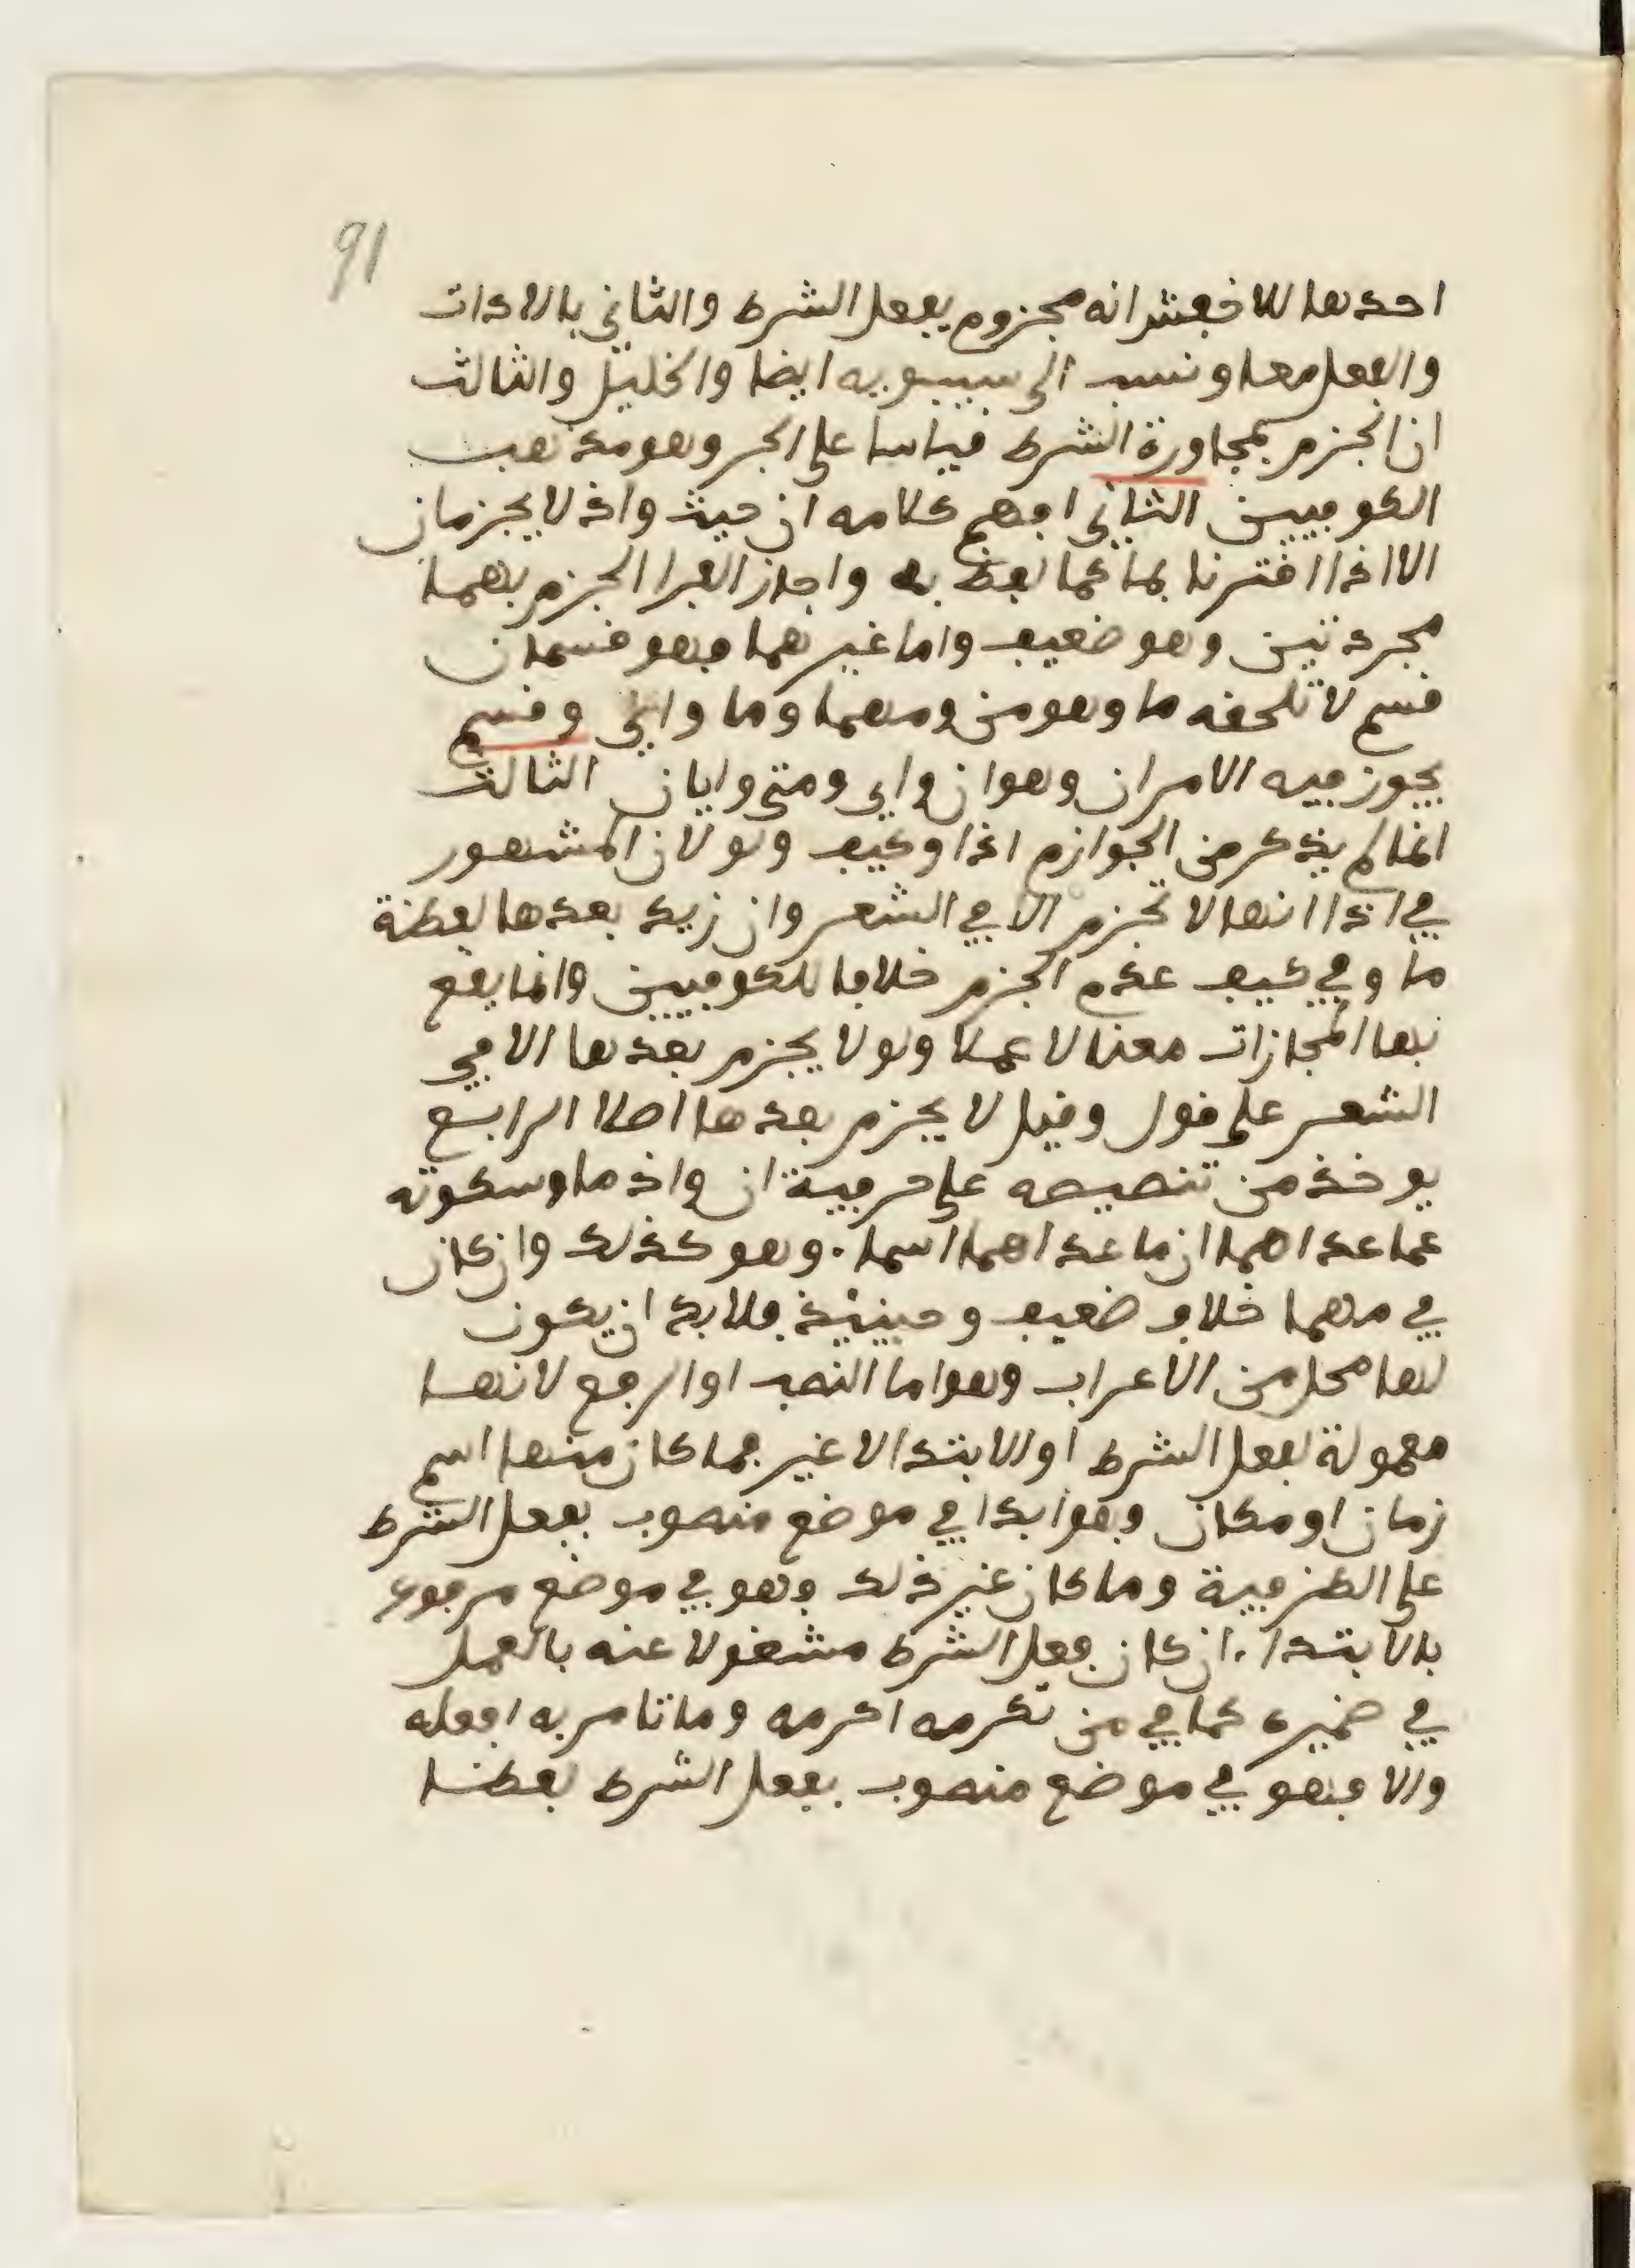 91
احدها للاخفش انه مجزوم بفعل الشرط والثاني بالادات
والفعل معا ونسب الى سيبويه ايضا والخليل والثالث
ان الجزم بمجاورة الشرط قياسا على الجر وهو مذهب
الكوفيين الثاني افهم كلامه ان حيث واذ لا يجزمان
الا اذا اقترنا بما كما لفظ به واجاز الفرا الجزم بهما
مجردتين وهو ضعيف واما غيرهما فهو قسمان
قسم لا تلحقه ما وهو من ومهما وما وانى وقسم
يجوز فيه الامران وهو ان واي ومتى وايان الثالث
انما لم يذكر من الجوازم اذا وكيف ولو لان المشهور
في اذا انها لا تجزم الا في الشعر وان زيد بعدها لفظة
ما وفي كيف عدم الجزم خلافا للكوفيين وانما يقع
بها المجازات معنا لا عملا ولو لا يجزم بعدها الا في
الشعر على قول وقيل لا يجزم بعدها اصلا الرابع
يوخذ من تنصيصه على حرفية ان واذ ما وسكوته
عما عداهما ان ما عداهما اسما. وهو كذلك وان كان
في مهما خلاف ضعيف وحينيذ فلا بد ان يكون
لها محل من الاعراب وهو اما النصب او الرفع لانها
معمولة لفعل الشرط او الابتدا لا غير فما كان منها اسم
زمان او مكان فهو ابدا في موضع منصوب بفعل الشرط
على الظرفية وما كان غير ذلك فهو في موضع مرفوع
بالابتدا. ان كان فعل الشرط مشغولا عنه بالعمل
في ضميره كما في من تكرمه اكرمه وما تامر به افعله
والا فهو في موضع منصوب بفعل الشرط لفظا